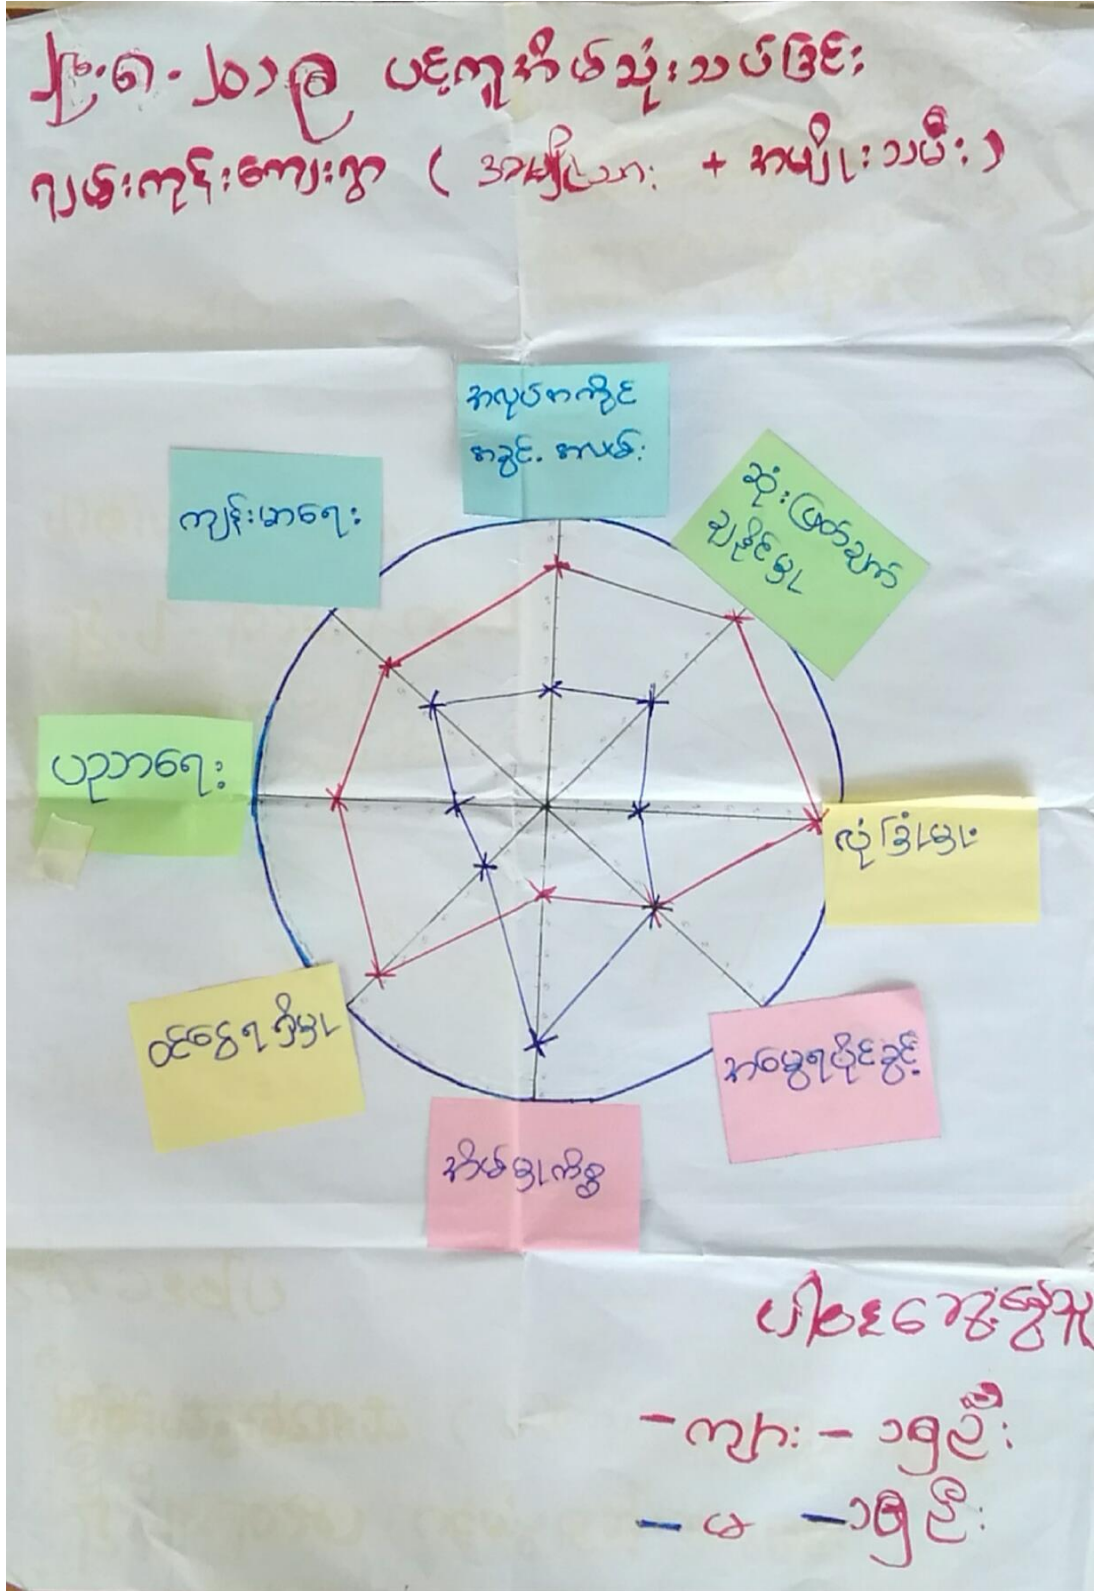 ပင့်ကူအိမ်သုံးသပ်ခြင်း
ကျွမ်းကုန်းကျေးရွာ ( အမျိုးသား + အမျိုးသမီး )
အလုပ်အကိုင်
အခွင့်. အလမ်း
ကျန်းမာရေး
ဆုံးဖြတ်ချက်
ချနိုင်မှု
ပညာရေး
လုံခြုံမှု
ဝင်ငွေရရှိမှု
အမွေရပိုင်ခွင့်
အိမ်မှုကိစ္စ
ပါဝင်ဆွေးနွေးသူ
- ကျား - ၁၅ဦး
- မ - ၁၅ဦး